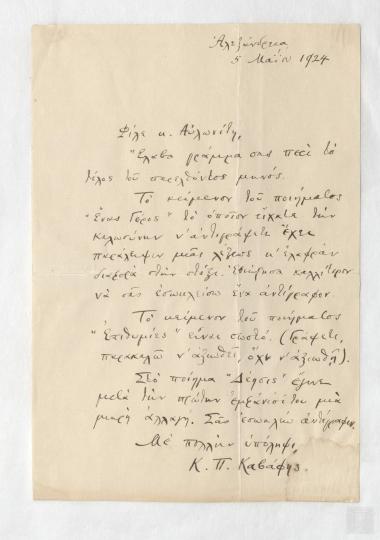 Ἀλεξάνδρεια
5 Μαΐου 1924
Φίλε κ. Αὐλωνίτη,
Ἔλαβα γράμμα σας περὶ τὸ
τέλος τοῦ παρελθόντος μηνός.
Τὸ κείμενον τοῦ ποιήματος
"Ἕνας Γέρος" τὸ ὁποῖον εἴχατε τὴν
καλωσύνην ν' ἀντιγράψετε ἔχει
παράλειψιν μιᾶς λέξεως κ' ἐλαφρὰν
διαφορὰ στὴν στίξι. Ἐθεώρησα καλλίτερον
νὰ σᾶς ἐσωκλείσω ἕνα ἀντίγραφον.
Τὸ κείμενον τοῦ ποιήματος
"Ἐπιθυμίες" εἶναι σωστό. (Γράψετε,
παρακαλῶ ν' ἀξιωθεῖ, ὄχι ν' ἀξιωθῇ).
Στὸ ποίημα "Δέησις" ἔγινε
μετὰ τὴν πρώτην ἐμφάνισί του μιὰ
μικρὴ ἀλλαγή. Σᾶς ἐσωκλείω ἀντίγραφον.
Μὲ πολλὴν ὑπόληψι,
Κ. Π. Καβάφης.